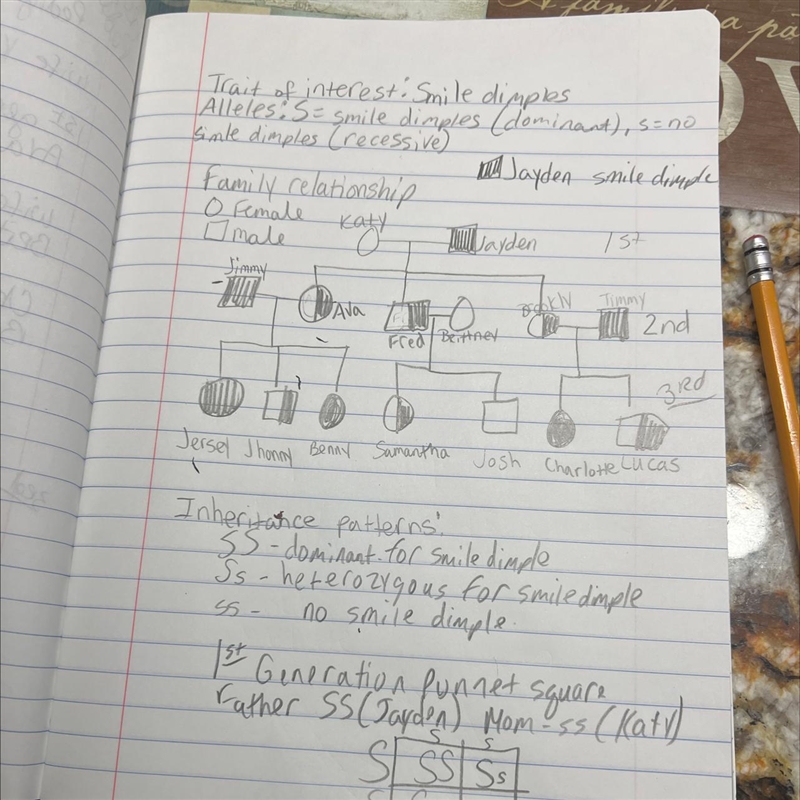 A family is a
OV
Trait of interest: Smile dimples
Alleles: S= smile dimples (dominant), s=no
smile dimples (recessive)
Jayden smile dimple
Family relationship
Female
male
Katy
Jayden
1st
Jimmy
Ava
Fred
Brittney
Timmy
2nd
3RD
Jersey Jhonny Benny Samantha Josh Charlotte Lucas
Inheritance patterns:
SS - dominant for smile dimple
Ss - heterozygous for smiledimple
ss - no smile dimple.
1st Generation punnet square
Father SS (Jayden) Mom-ss (Katy)
s s
S SS Ss